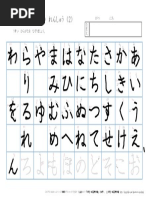 れんしゅう (2)
あいうえお
かきくけこ
さしすせそ
たちつてと
なにぬねの
はひふへほ
まみむめも
やゆよ
らりるれろ
わをん